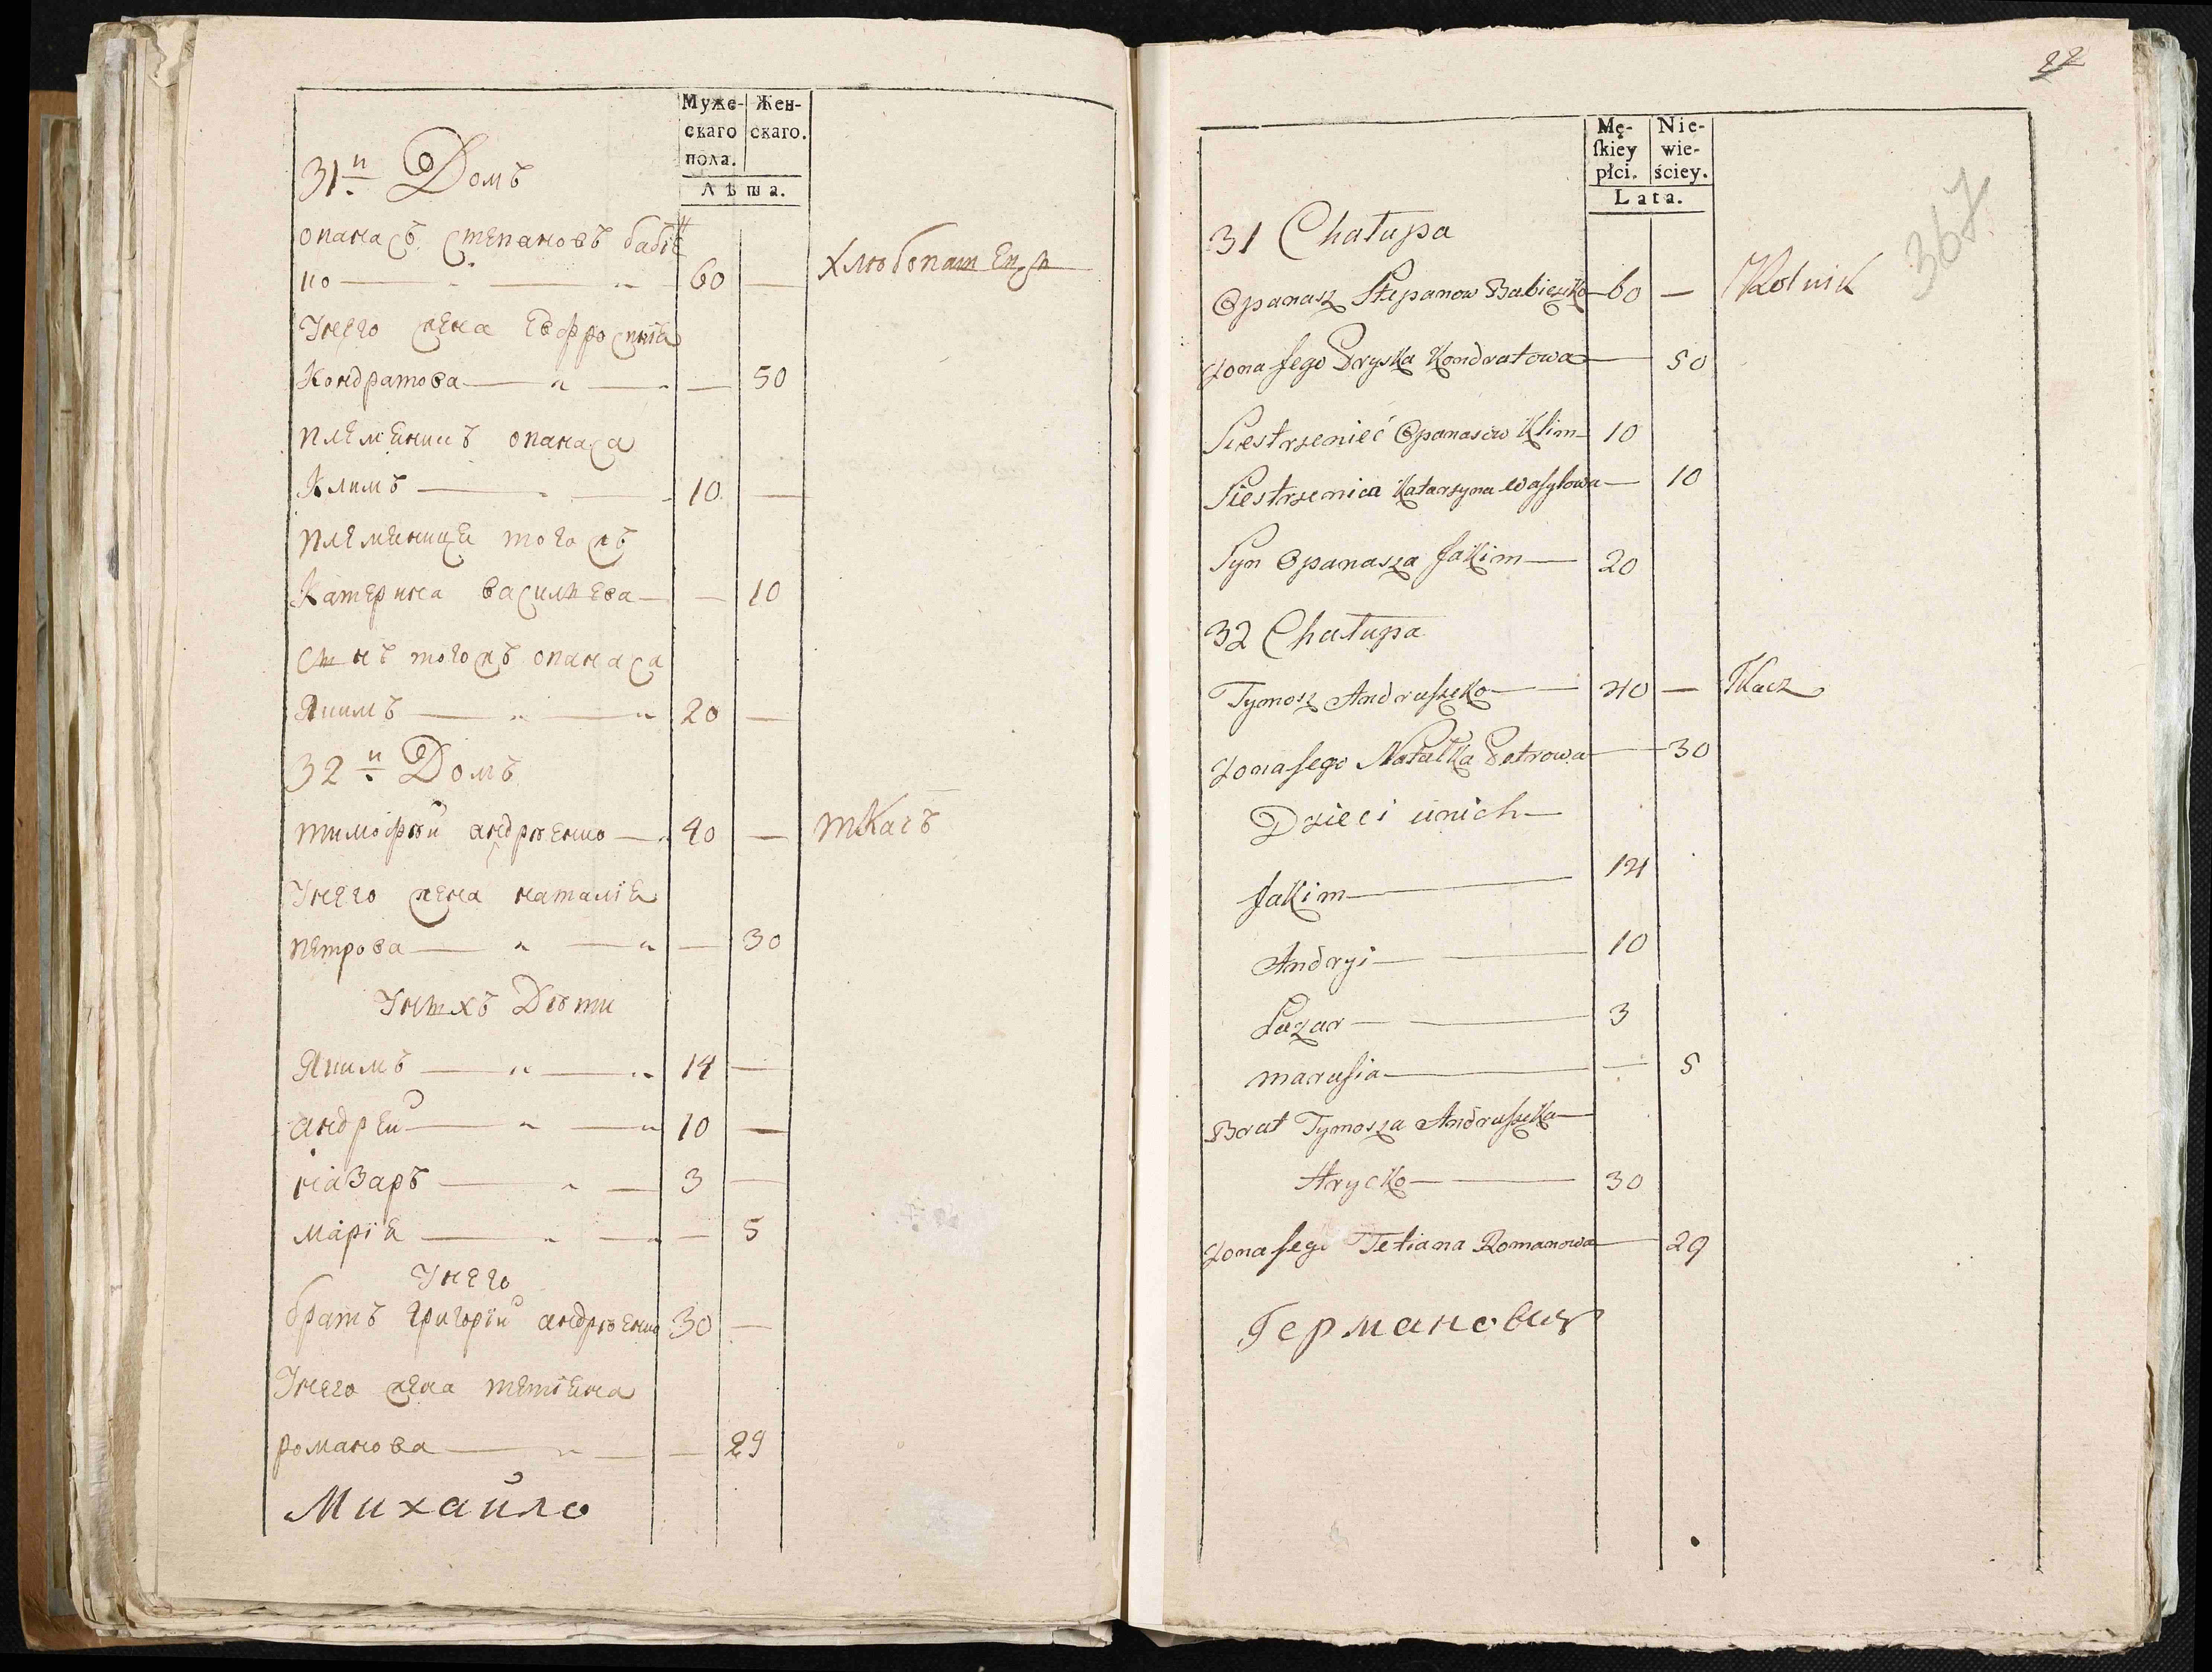 Муже-
скаго
пола.
Жен-
скаго.
Лѣта.
31й Домъ
опанасъ степановъ бабіч
ко 60 —
хлѣбопашецъ
Унего жена Евфросинія
Кондратова — 50
племеникъ опанаса
Климъ 10 —
племеница тогожъ
Катерина васильева — 10
сынъ тогожъ опанаса
Якимъ 20 —
32й Домъ
тимофѣй андрѣенко 40 — ткачъ
Унего жена наталія
петрова — 30
Унихъ Дѣти
Якимъ 14 —
андрей 10 —
назаръ 3 —
марія — 5
Унего
братъ григорій андрѣенко 30 —
Унего жена тетіяна
романова — 29
Михайло
22
Mę-
ſkiey
płci.
Nie-
wie-
ściey.
Lata.
367
31 Chałupa
Opanasz Stepanow Babiczko 60 — Rolnik
Zona jego Pryska Kondratowa 50
Siestrzenieć Opanasów Klim 10
Siestrzenica Katarzyna Wasylowa 10
Syn Opanasza Jakim 20
32 Chałupa
Tymosz Andruszko 40 — Tkacz
Zona jego Natalka Petrowa 30
Dzieci unich
Jakim 14
Andryi 10
Lazar 3
marusia — 5
Brat Tymosza Andruszka
Hrycko 30
Zona jego Tetiana Romanowa 29
Германович